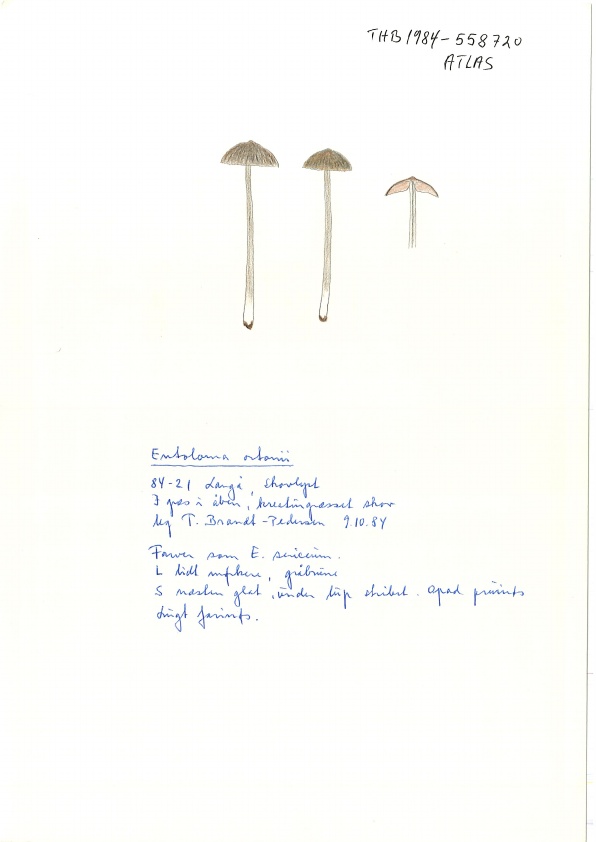 THB1984-558720
ATLAS
Entoloma ortonii
84-21 Langå, Skovlyst
I græs i åben, kreaturgræsset skov
leg T. Brandt-Pedersen 9.10.84
Farver som E. sericeum.
L lidt mørkere, gråbrune
S næsten glat, under lup stribet. opad
Lugt